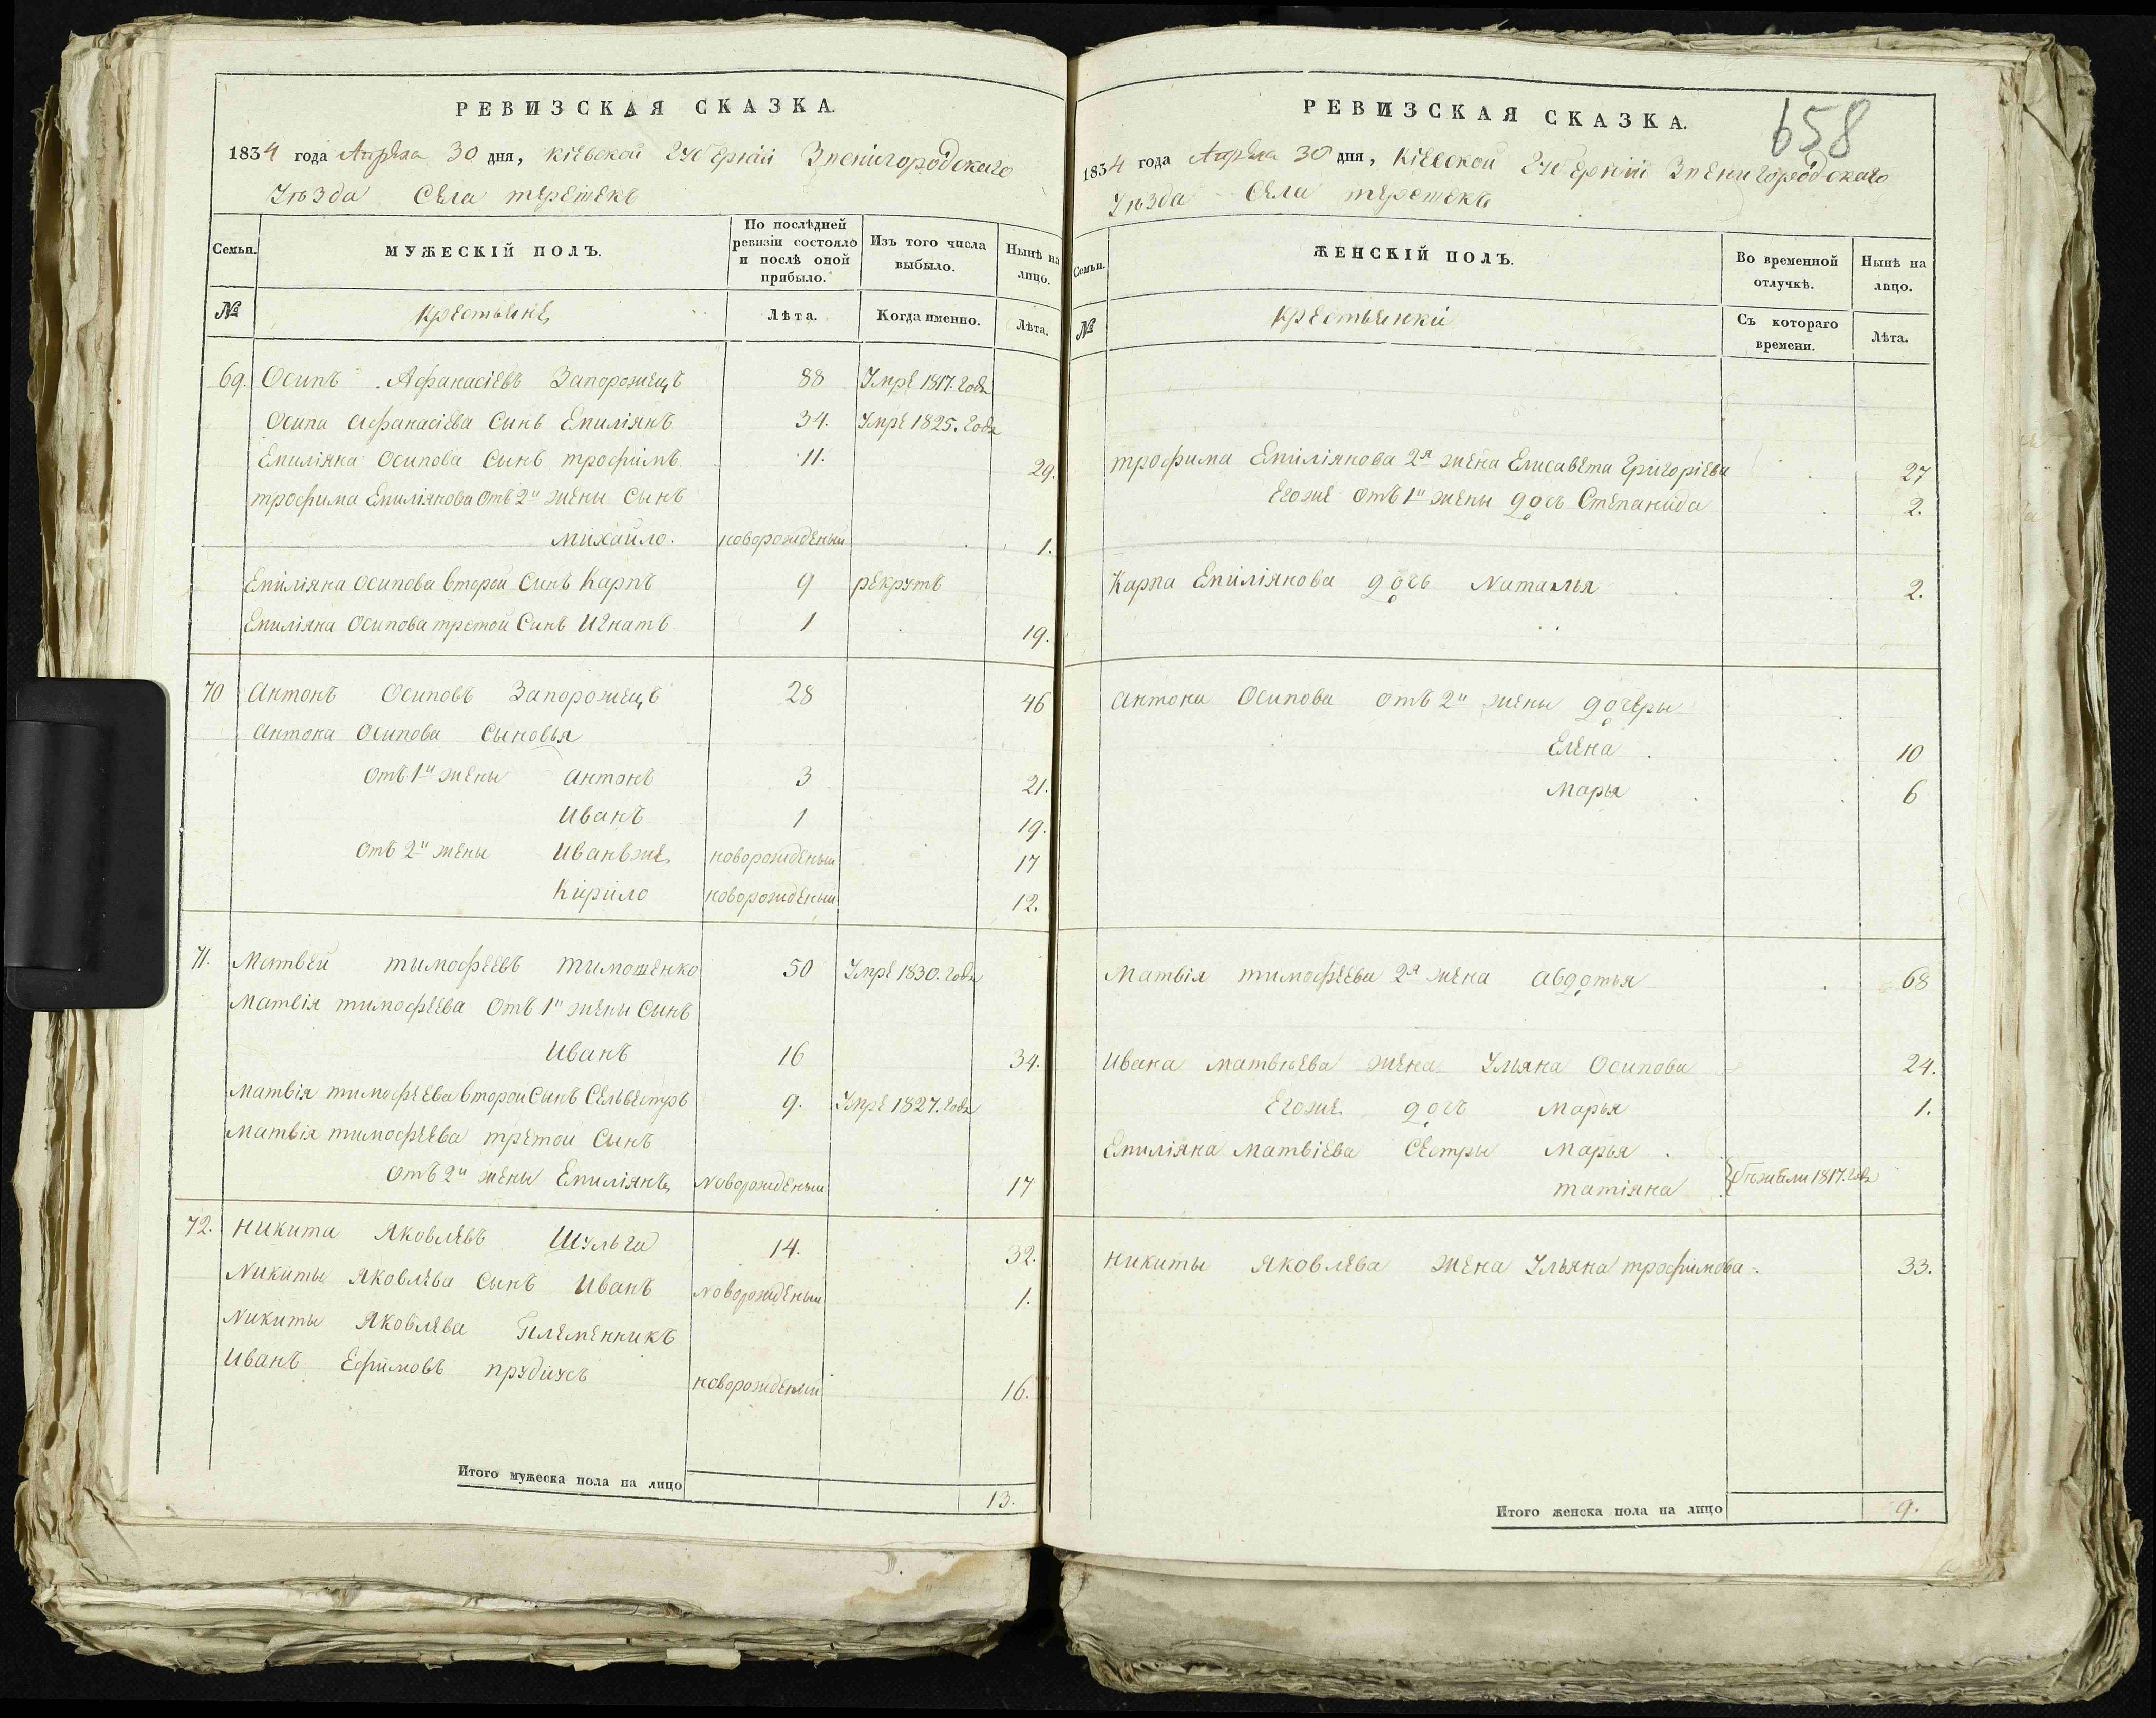 РЕВИЗСКАЯ СКАЗКА.
1834 года Апреля 30 дня, Кіевской Губерніи Звенигородскаго
Уѣзда Села Терешекъ
Семьи.
МУЖЕСКІЙ ПОЛЪ.
По послѣдней ревизіи состояло и послѣ оной прибыло.
Изъ того числа выбыло.
Нынѣ на лицо.
№
Крестьяне
Лѣта.
Когда именно.
Лѣта.
69. Осипъ Афанасіевъ Запорожецъ 88 Умре 1817. Года
Осипа Афанасіева Сынъ Емиліянъ 34. Умре 1825. Года
Емиліяна Осипова Сынъ трофимъ 11. 29.
трофима Емиліянова отъ 2й жены Сынъ
михайло. новорожденый 1.
Емиліяна Осипова второй Сынъ Карпъ 9 рекрутъ
Емиліяна Осипова третой Сынъ Игнатъ 1 19.
70 Антонъ Осиповъ Запорожецъ 28 46
Антона Осипова Сыновья
отъ 1й жены Антонъ 3 21.
Иванъ 1 19.
отъ 2й жены Иванъ же новорожденый 17
Кирило новорожденый 12.
71. Матвей тимофеевъ тимошенко 50 Умре 1830. Года
Матвія тимофеева отъ 1й жены Сынъ
Иванъ 16 34.
Матвія тимофеева второй Сынъ Сельвестръ 9. Умре 1827. Года
Матвія тимофеева третой Сынъ
отъ 2й жены Емиліянъ новорожденый 17
72. Никита Яковлевъ Шульга 14. 32.
Никиты Яковлева Сынъ Иванъ новорожденый 1.
Никиты Яковлева Племенникъ
Иванъ Ефимовъ прудиусъ новорожденый 16.
Итого мужеска пола на лицо 13.
658
РЕВИЗСКАЯ СКАЗКА.
1834 года Апреля 30 дня, Кіевской Губерніи Звенигородскаго
Уѣзда Села терешекъ
Семьи.
ЖЕНСКІЙ ПОЛЪ.
Во временной отлучкѣ.
Нынѣ на лицо.
№
Крестьянки
Съ котораго времени.
Лѣта.
трофима Емиліянова 2я жена Елисавета Григоріева 27
Егоже отъ 1й жены дочь Степанида 2.
Карпа Емиліянова дочь Наталья 2.
Антона Осипова отъ 2й жены дочеры
Елена 10
Марья 6
Матвія тимофеева 2я жена Авдотья 68
Ивана матвіева жена Ульяна Осипова 24.
Егоже дочь Марья 1.
Емиліяна Матвіева Сестры Марья
татіяна бежали 1817. Года
Никиты Яковлева жена Ульяна трофимова 33.
Итого женска пола на лицо 9.